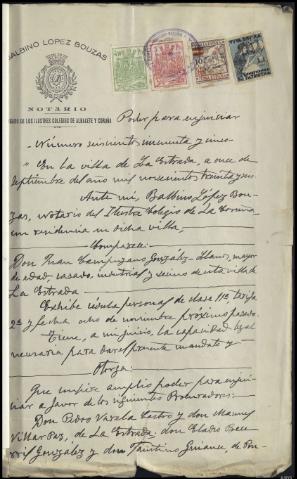 BALBINO LOPEZ BOUZAS
NOTARIO
DE LOS ILUSTRES COLEGIOS DE ALBACETE Y CORUÑA
Poder para enjuiciar
Número seiscientos cincuenta y cinco
En la villa de La Estrada, a once de
septiembre del año mil novecientos treinta y
Ante mí, Balbino López Bou-
zas, notario del Ilustre Colegio de La Coruña
con residencia en dicha villa,
Comparece:
Don Juan Campuzano González-Llanos, mayor
de edad, casado, industrial y vecino de esta villa de
La Estrada.
Exhibe cédula personal de clase 11ª tarifa
2ª y fecha ocho de noviembre próximo pasado.
Tiene, a mi juicio, la capacidad legal
necesaria para hacer presente mandato y
Otorga:
Que confiere amplio poder para enjui-
ciar a favor de los siguientes Procuradores:
Don Pedro Varela Castro y don Manuel
Villar Paz, de La Estrada; don Eladio
González y don Faustino de Pon-